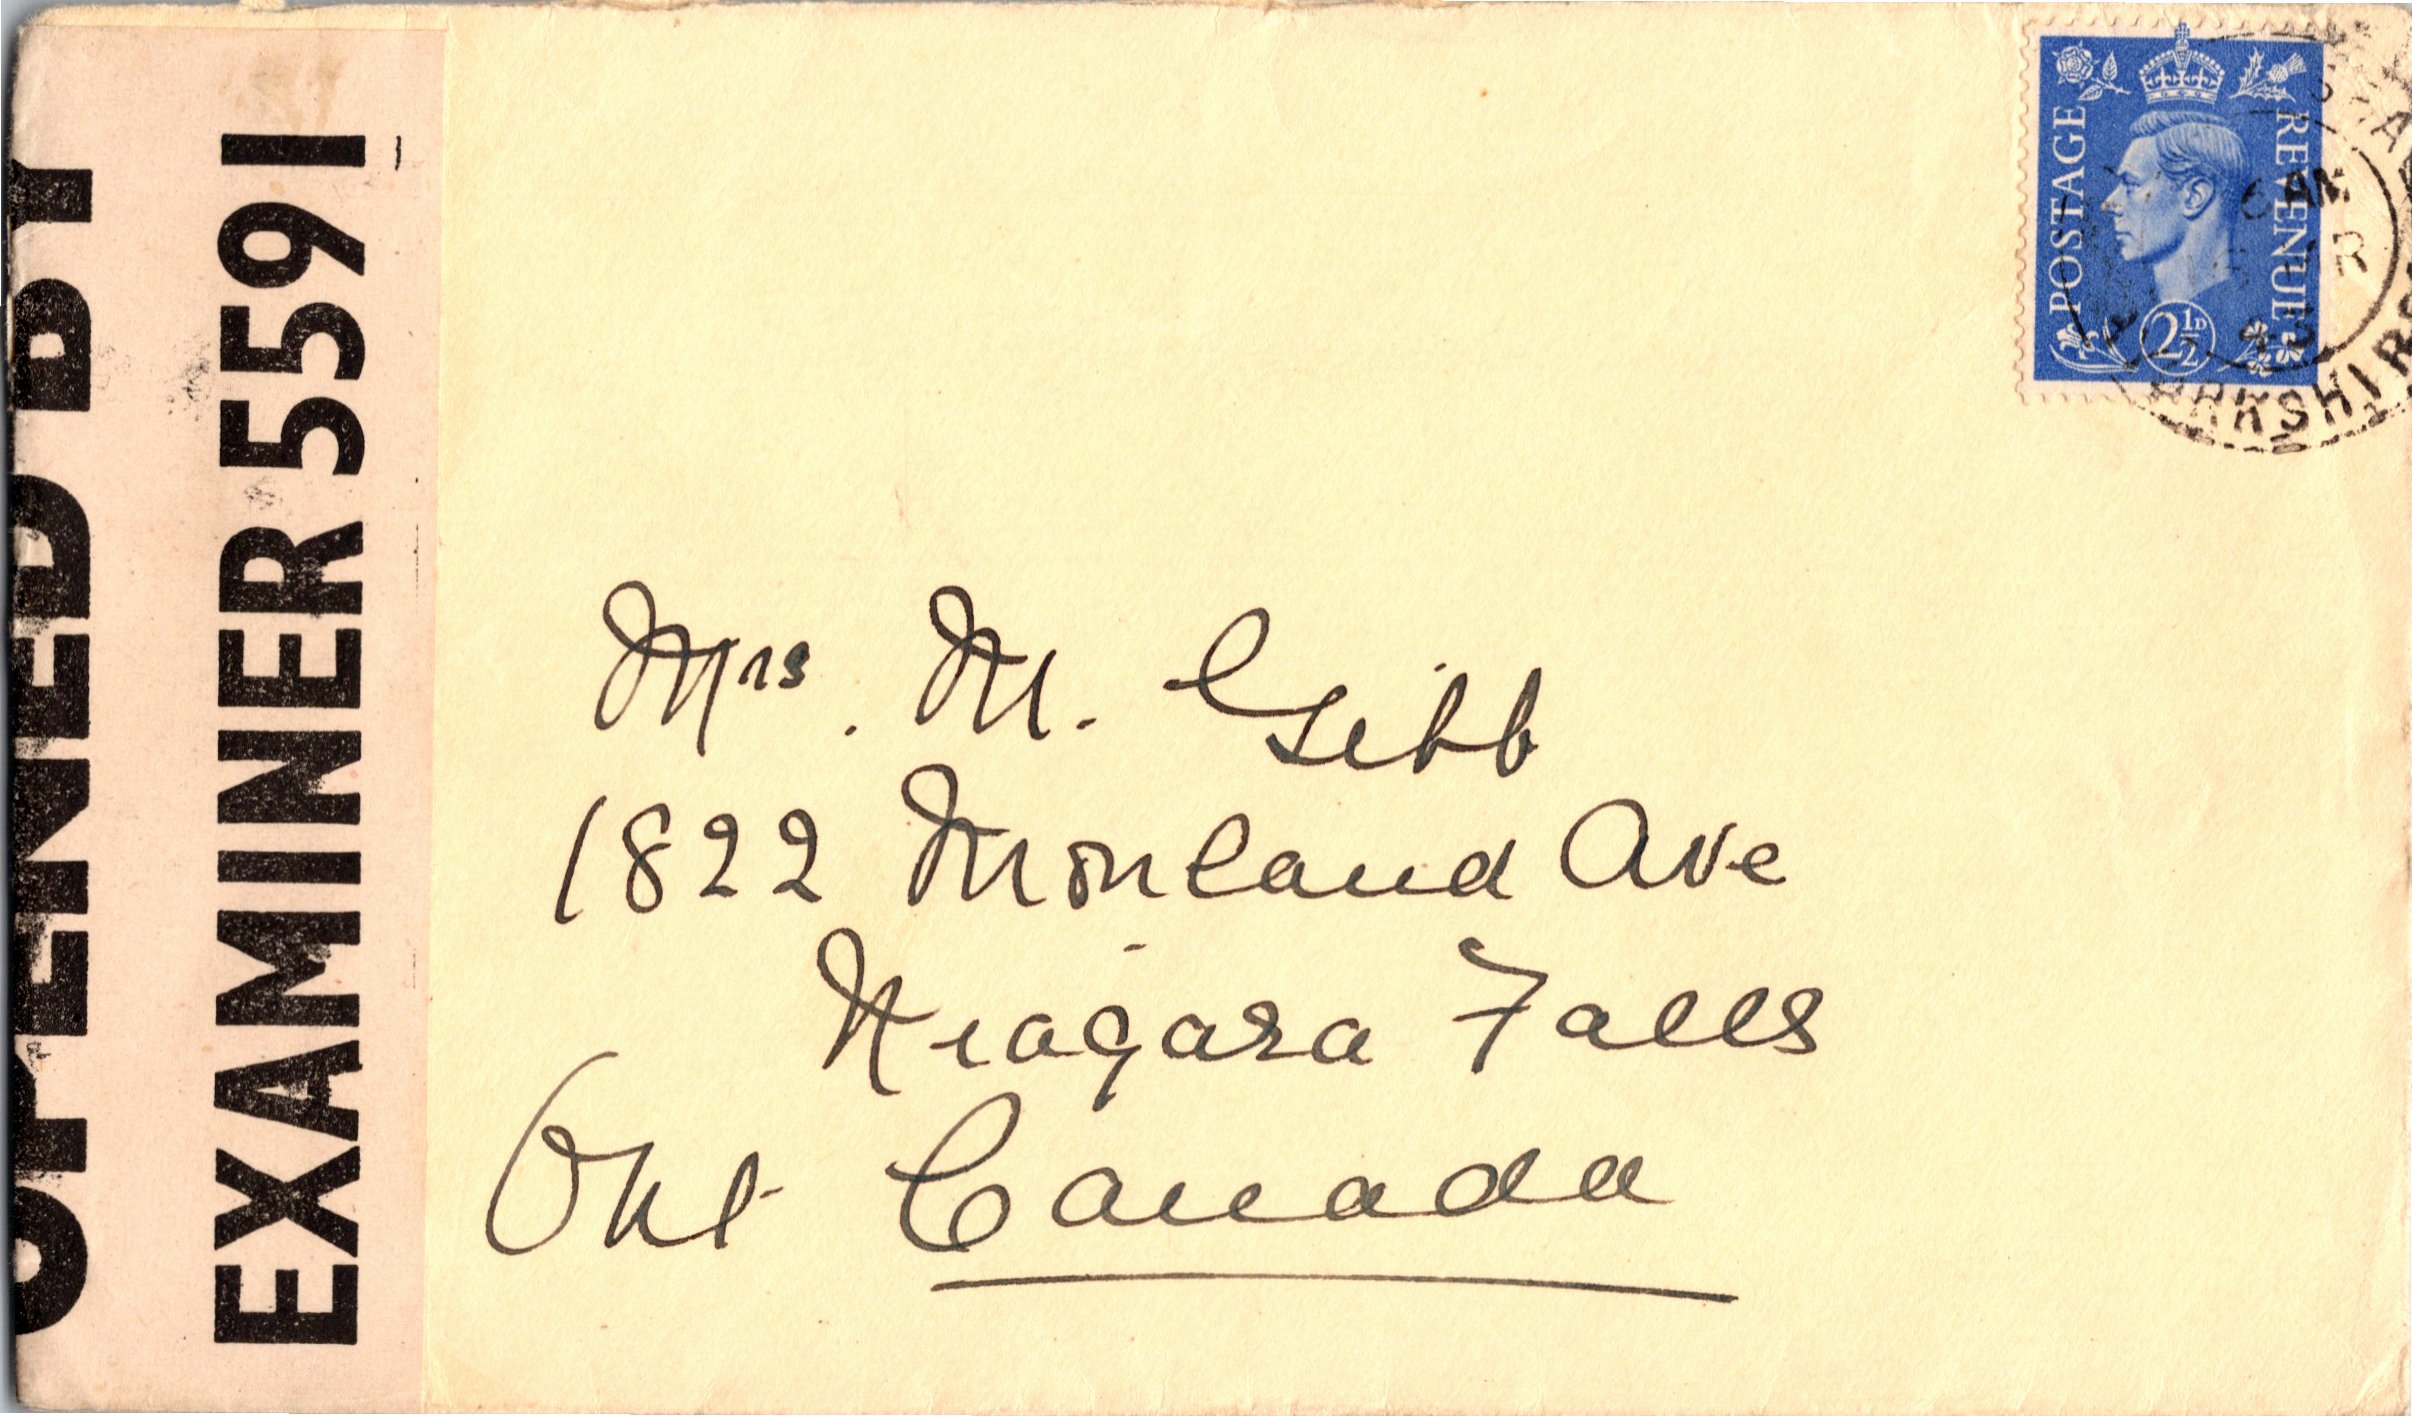 OPENED BY
EXAMINER 5591
POSTAGE
REVENUE
2½D
6 AM
Mrs. M. Gibb
1822 Monland Ave
Niagara Falls
Ont Canada